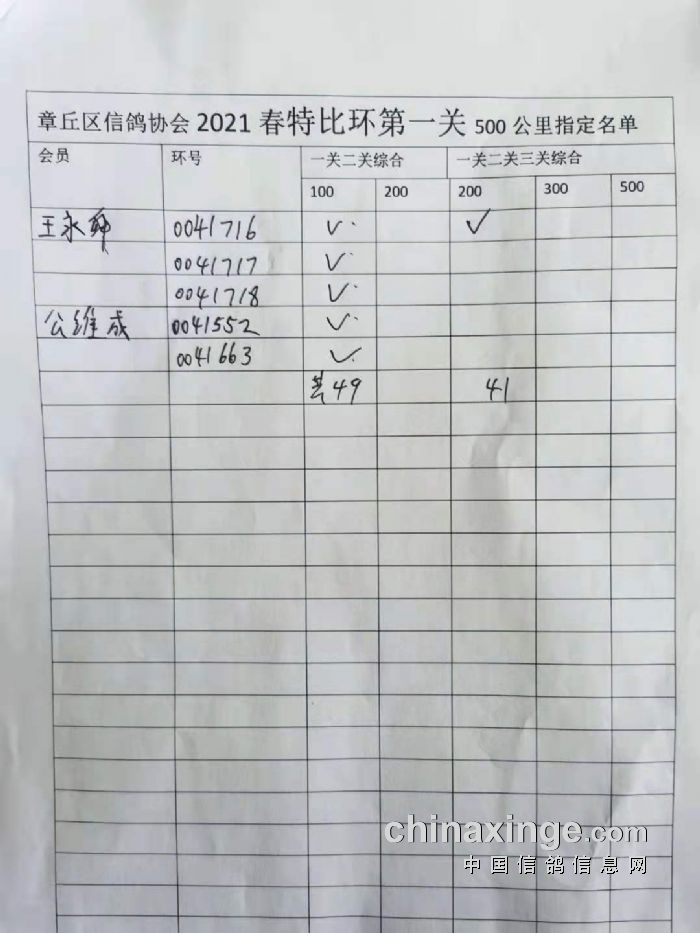 章丘区信鸽协会 2021 春特比环第一关 500 公里指定名单
会员 环号 一关二关综合 一关二关三关综合
100 200 200 300 500
王永 0041716 ✓ ✓
0041717 ✓
0041718 ✓
公维成 0041552 ✓
0041663 ✓
共49 41
chinaxinge.com
中国信鸽信息网